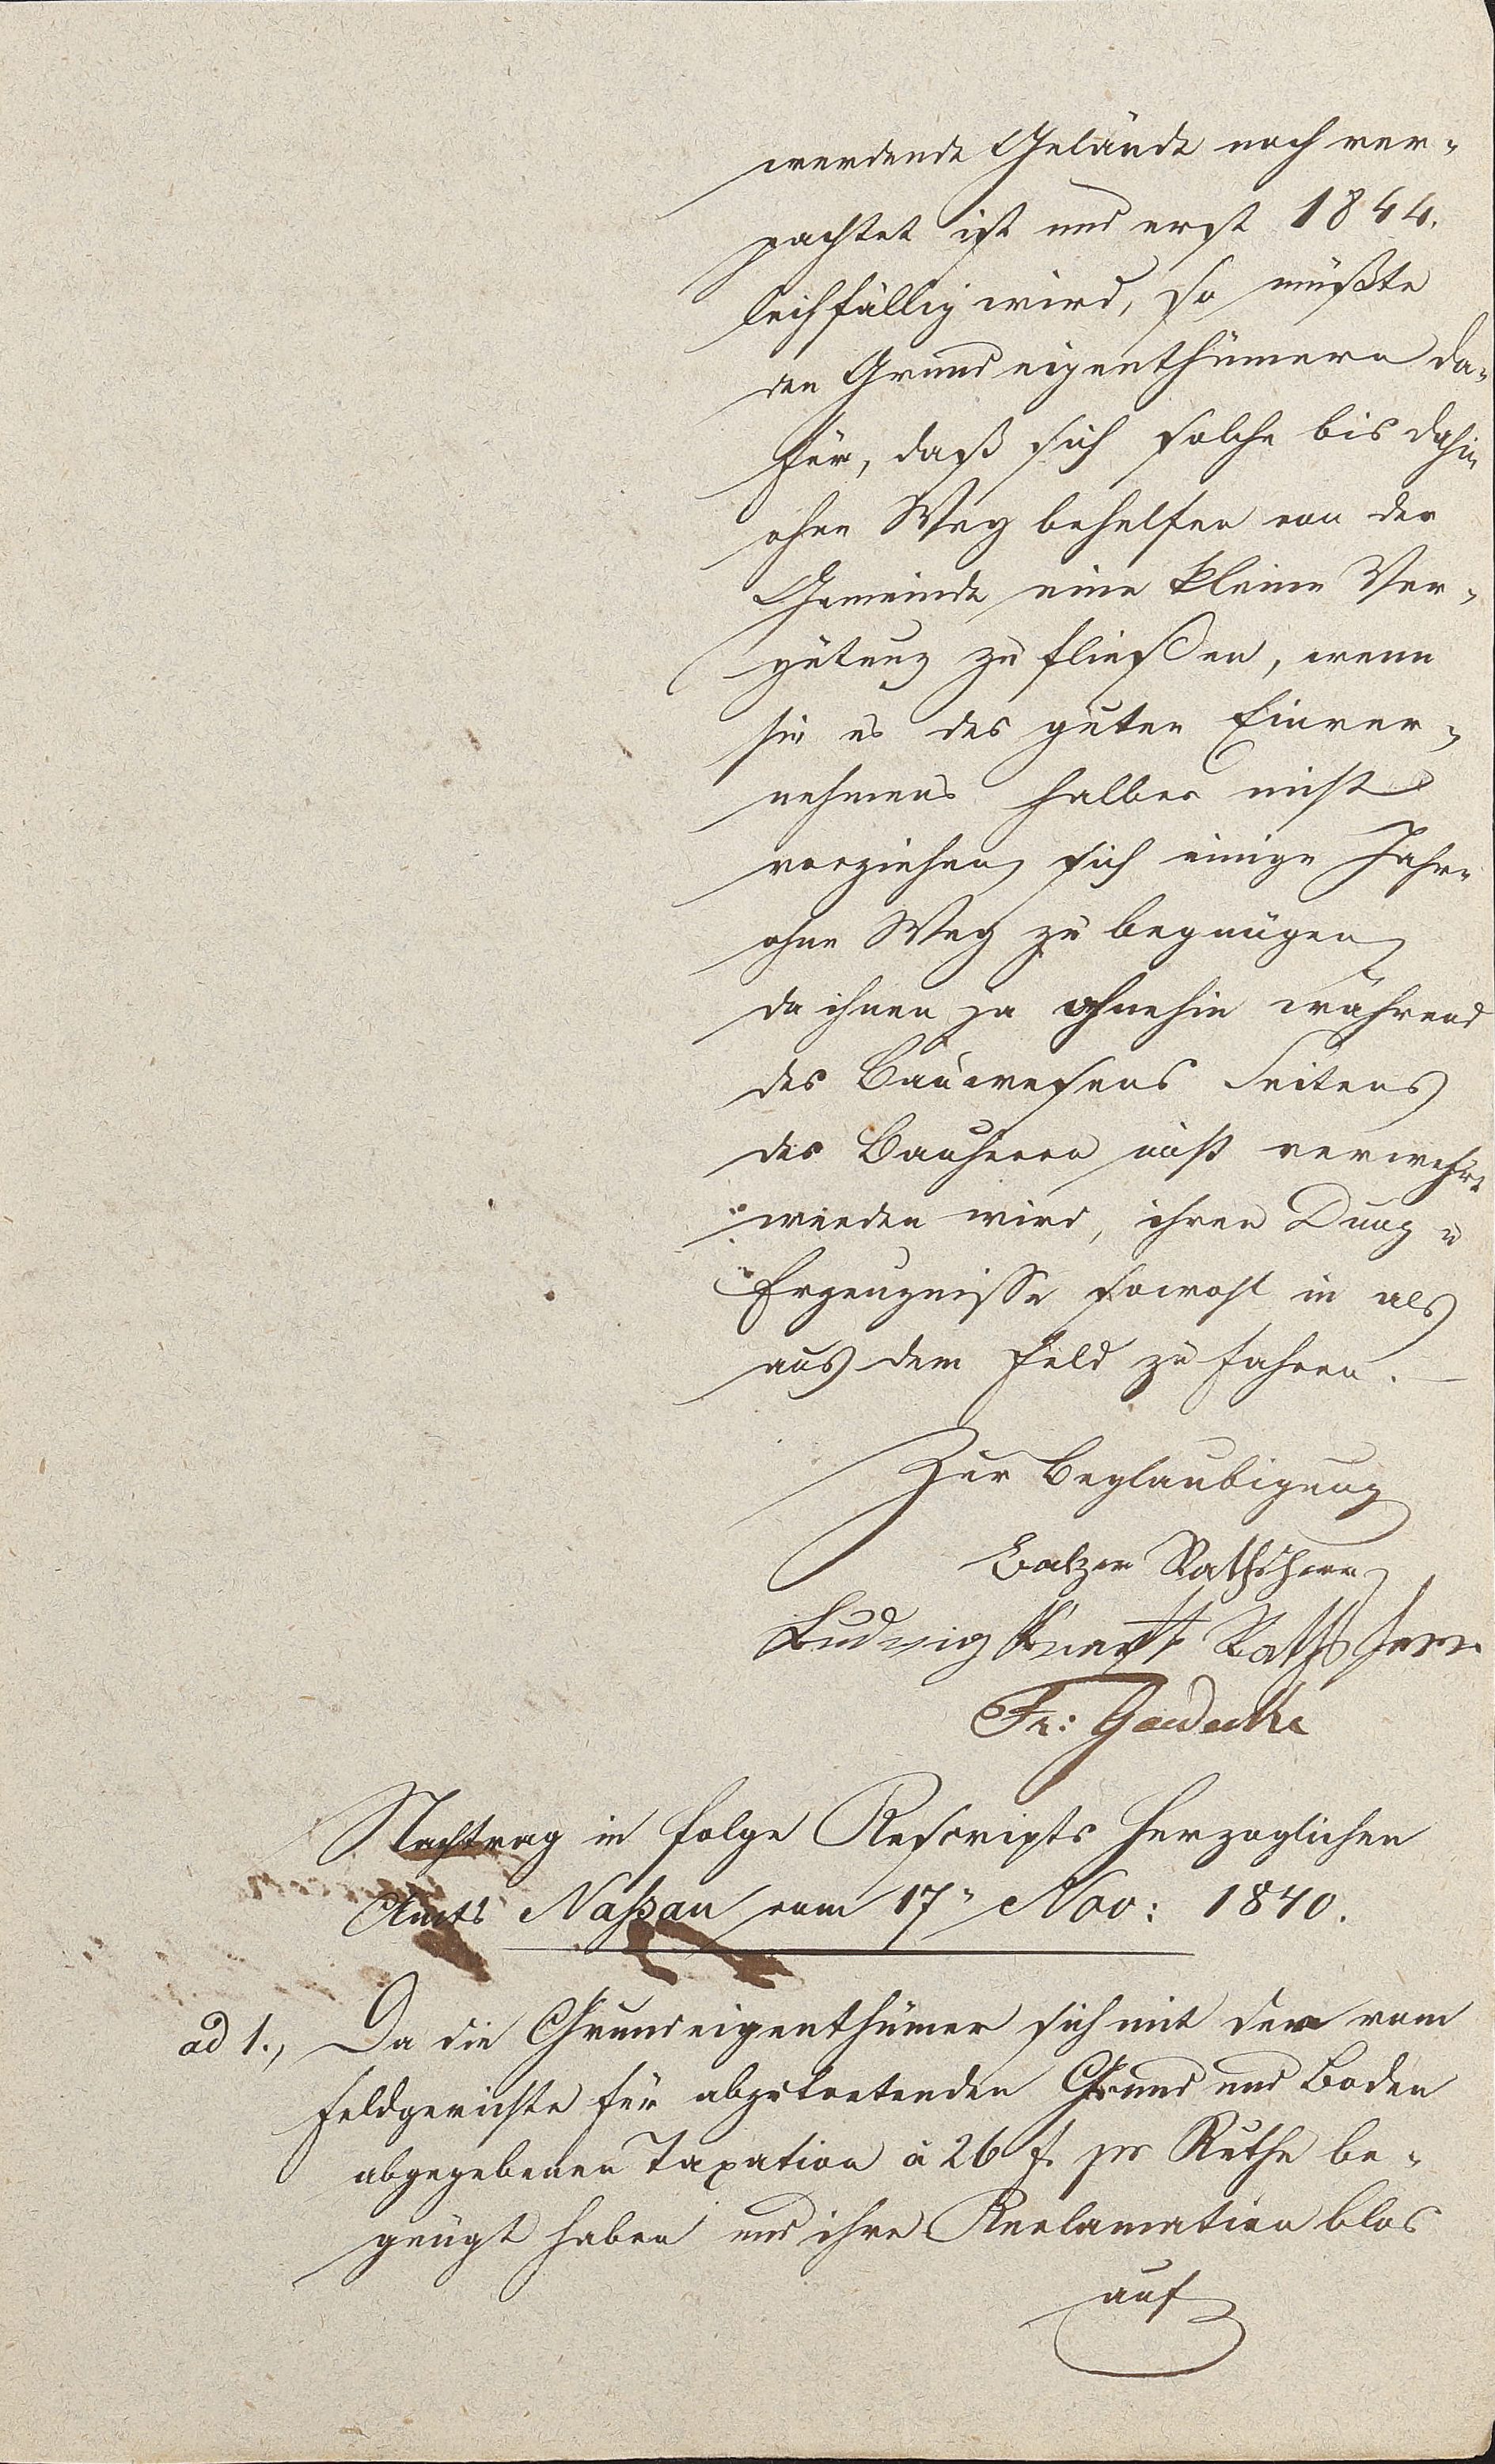 werdende Gelände noch ver-
pachtet ist und erst 1844.
leihfällig wird, so müßte
den Grundeigenthümern da-
für, daß sich solche bis dahin
ohne Weg behelfen von der
Gemeinde eine kleine Ver-
gütung zu fließen, wenn
sie es des guten Einver-
nehmens halber nicht
vorziehen sich einige Jahre
ohne Weg zu begnügen
da ihnen ja ohnehin während
des Bauwesens Seitens
des Bauherrn nicht verwehrt
werden wird, ihren Dung u
Erzeugnisse sowohl in als
aus dem Feld zu fahren. —
Zur Beglaubigung
Balzer Rathsherr
Ludwig Rathsherr
Fr: Goedecke
Nachtrag in folge Rescripts Herzoglichen
Amts Naßau vom 17n Nov: 1840.
ad 1., Da die Grundeigenthümer sich mit der vom
Feldgerichte für abzutretenden Grund und Boden
abgegebenen Taxation à 26 f. pr Ruthe be-
gnügt haben und ihre Reclamation blos
auf